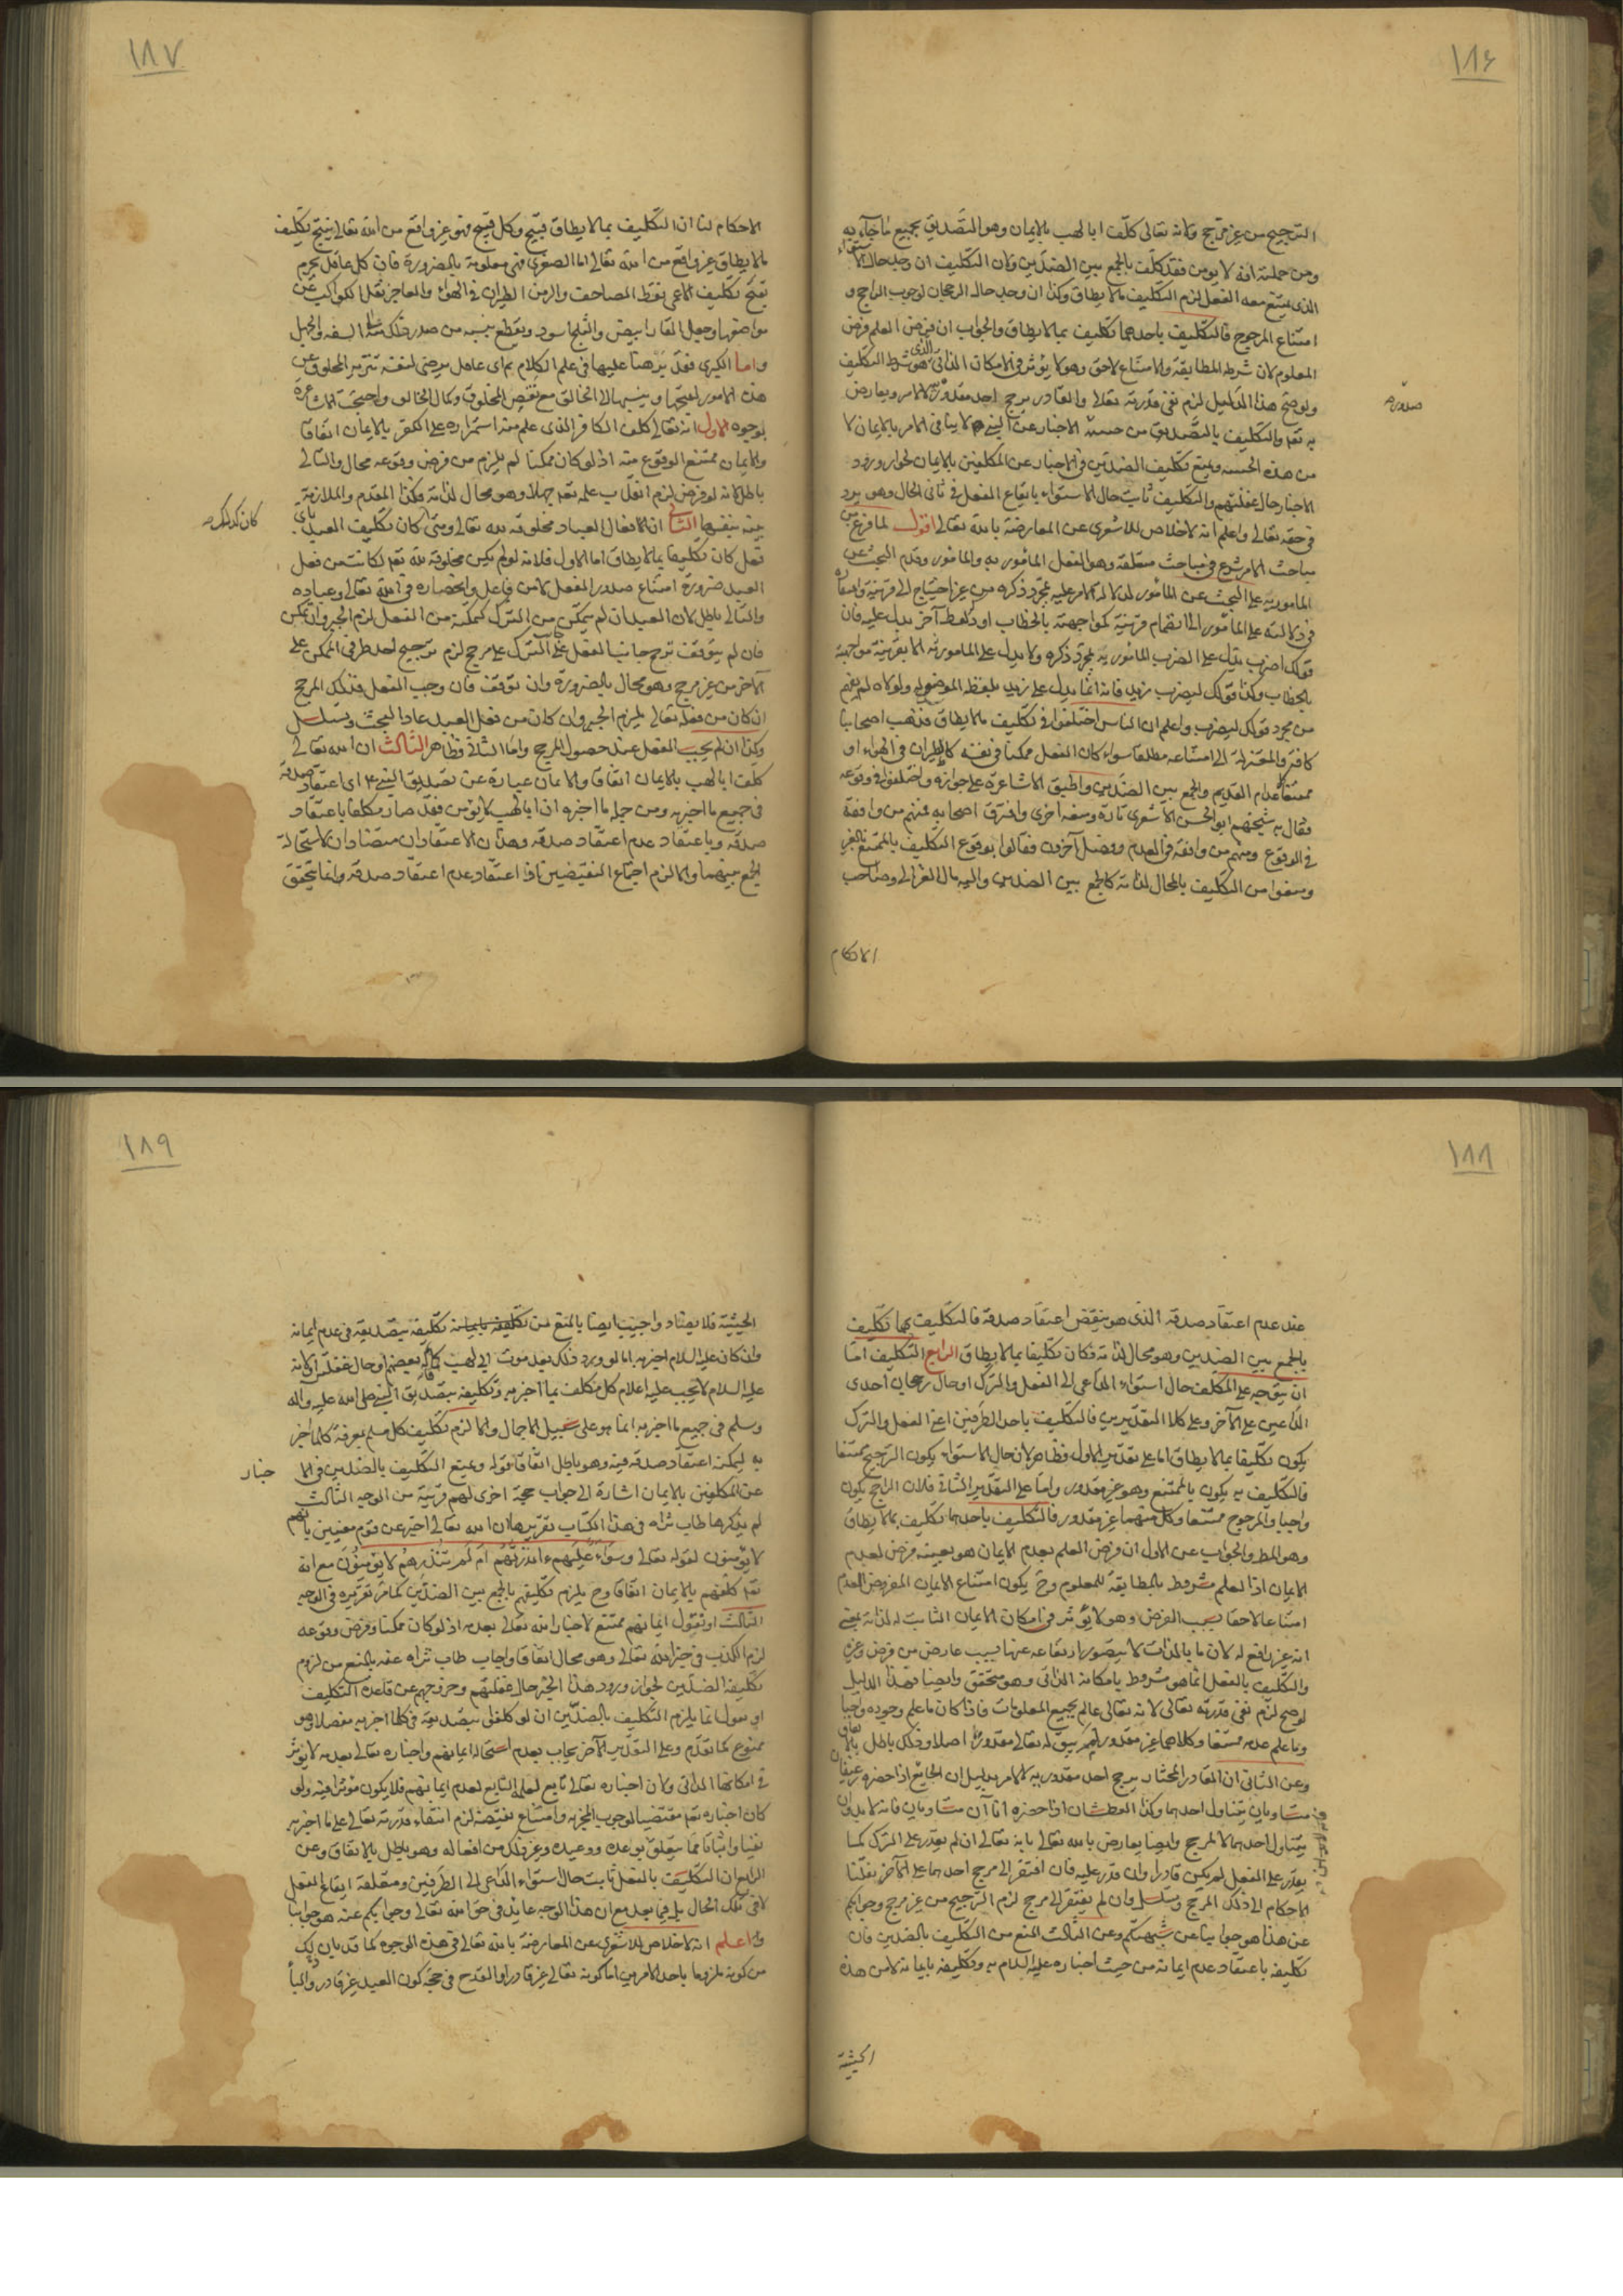 ١٨٦
الترجيح من غير مرجح ولانه تعالى كلف ابا لهب بالايمان وهو التصديق بجميع ما جاء به
ومن جملته انه لا يؤمن فقد كلف بالجمع بين الضدين ولان التكليف ان وجد حال الاستواء
الذى يمتنع معه الفعل لزم التكليف ما لا يطاق وكذا ان وجد حال الرجحان لوجوب الراجح و
امتناع المرجوح فالتكليف باحدهما تكليف بما لا يطاق والجواب ان فرض العلم فرض
المعلوم لان شرطه المطابقة والامتناع لاحق وهو لا يؤثر فى الامكان الذاتى الذى هو شرط التكليف
ولو صح هذا الدليل لزم نفى قدرته تعالى والقادر يرجح احد مقدوريه لا لامر ويعارض
صدوره
به تعالى والتكليف بالتصديق من حيث الاخبار عن النبى لا ينافى الامر بالايمان لا
من هذه الحيثية ويمنع تكليف الضدين فى الاخبار عن المكلفين بالايمان لجواز ورود
الاخبار حال غفلتهم والتكليف ثابت حال الاستواء بايقاع الفعل فى ثانى الحال وهو يرد
فى حقه تعالى واعلم انه لا خلاص للاشعرى عن المعارضة بالله تعالى اقول لما فرغ من
مباحث الامر شرع فى مباحث متعلقه وهو الفعل المأمور به والمأمور وقدم البحث عن
المأمور به على البحث عن المأمور لدلالة الامر عليه بمجرد ذكره من غير احتياج الى قرينة وافتقاره
فى دلالته على المأمور الى انضمام قرينة كمواجهته بالخطاب او ذكر لفظ آخر يدل عليه فان
قولك اضرب يدل على الضرب المأمور به بمجرد ذكره ولا يدل على المأمور به الا بقرينة مواجهة
الخطاب وكذا قولك ليضرب زيد فانه انما يدل على زيد بلفظه الموضوع له ولولاه لم يفهم
من مجرد قولك ليضرب واعلم ان الناس اختلفوا فى تكليف ما لا يطاق فذهب اصحابنا
كافة والمعتزلة الى امتناعه مطلقا سواء كان الفعل ممكنا فى نفسه كالطيران فى الهواء او
ممتنعا كاعدام القديم والجمع بين الضدين واطبق الاشاعرة على جوازه واختلفوا فى وقوعه
فقال به شيخهم ابو الحسن الاشعرى تارة ومنعه اخرى وافترق اصحابه فمنهم من وافقه
فى الوقوع ومنهم من وافقه فى العدم وفصل آخرون فقالوا بوقوع التكليف بالممتنع بالغير
ومنعوا من التكليف بالمحال لذاته كالجمع بين الضدين واليه مال الغزالى وصاحب
الاحكام
١٨٧
الاحكام لنا ان التكليف بما لا يطاق قبيح وكل قبيح فهو غير واقع من الله تعالى ينتج تكليف
ما لا يطاق غير واقع من الله تعالى اما الصغرى فهى معلومة بالضرورة فان كل عاقل يجزم
بقبح تكليف الاعمى بنقط المصاحف والزمن الطيران فى الهواء والعاجز نقل الكواكب عن
مواضعها وجعل القار ابيض والثلج اسود ويقطع بنسبة من صدر ذلك منه الى السفه والجهل
واما الكبرى فقد برهنا عليها فى علم الكلام بم اى عاقل يرضى لنفسه تنزيه المخلوق عن
هذه الامور لقبحها وينسبها الى الخالق مع نقص المخلوق وكمال الخالق واحتجت الاشاعرة
بوجوه الاول انه تعالى كلف الكافر الذى علم منه استمراره على الكفر بالايمان اتفاقا
والايمان ممتنع الوقوع منه اذ لو كان ممكنا لم يلزم من فرض وقوعه محال والتالى
باطل لانه لو فرض لزم انقلاب علمه تعالى جهلا وهو محال لذاته فكذا المقدم والملازمة
بينة بنفسها الثانى ان الافعال العباد مخلوقة لله تعالى ومتى كان تكليف العبيد باى
كان كذلك
فعل كان تكليفا بما لا يطاق اما الاول فلانه لو لم يكن مخلوقة لله تعالى لكانت من فعل
العبيد ضرورة امتناع صدور الفعل لا من فاعل وانحصاره فى الله تعالى وعباده
والتالى باطل لان العبد ان لم يتمكن من الترك كتمكنه من الفعل لزم الجبر وان تمكن
فان لم يتوقف ترجح جانب الفعل على الترك على مرجح لزم ترجيح احد طرفى الممكن على
الآخر من غير مرجح وهو محال بالضرورة وان توقف فان وجب الفعل فذلك المرجح
ان كان من فعله تعالى يلزم الجبر وان كان من فعل العبد عاد البحث وتسلسل
وكذا ان لم يجب الفعل عند حصول المرجح واما الثانى فظاهر الثالث ان الله تعالى
كلف ابا لهب بالايمان اتفاقا والايمان عبارة عن تصديق النبى اى اعتقاد صدقه
فى جميع ما اخبر به ومن جملة ما اخبر ان ابا لهب لا يؤمن فقد صار مكلفا باعتقاد
صدقه وباعتقاد عدم اعتقاد صدقه وهذان الاعتقادان متضادان لاستحالة
الجمع بينهما والا لزم اجتماع النقيضين فاذا اعتقاد عدم اعتقاد صدقه وانما يتحقق
١٨٨
عند عدم اعتقاد صدقه الذى هو نقيض اعتقاد صدقه فالتكليف بهما تكليف
بالجمع بين الضدين وهو محال لذاته فكان تكليفا بما لا يطاق الرابع التكليف اما
ان يتوجه على المكلف حال استواء الداعى الى الفعل والترك او حال رجحان احدى
الداعيين على الآخر وعلى كلا التقديرين فالتكليف باحد الطرفين اعنى الفعل والترك
يكون تكليفا بما لا يطاق اما على تقدير الاول فظاهر لان حال الاستواء يكون الترجيح ممتنعا
فالتكليف به يكون بالممتنع وهو غير مقدور واما على التقدير الثانى فلان الراجح يكون
واجبا والمرجوح ممتنعا وكل منهما غير مقدور فالتكليف باحدهما تكليف بما لا يطاق
وهو المط والجواب عن الاول ان فرض العلم بعدم الايمان هو بعينه فرض لعدم
الايمان اذ العلم مشروط بالمطابقة للمعلوم وح يكون امتناع الايمان المفروض العدم
امتناعا لاحقا بسبب الفرض وهو لا يؤثر فى امكان الايمان الثابت له لذاته بمعنى
انه غير رافع له لان ما بالذات لا يتصور ارتفاعه عنها بسبب عارض من فرض وغيره
والتكليف بالفعل انما هو مشروط بامكانه الذاتى وهو متحقق وايضا فهذا الدليل
لو صح لزم نفى قدرته تعالى لانه تعالى عالم بجميع المعلومات فاذا كان ما علم وجوده واجبا
وما علم عدمه ممتنعا وكلاهما غير مقدور لم يبق له تعالى مقدورا اصلا وذلك باطل بالاتفاق
وعن الثانى ان القادر المختار يرجح احد مقدوريه لا لامر بدليل ان الجائع اذا حضره رغيفان
متساويان يتناول احدهما وكذا العطشان اذا حضره اناآن متساويان فانه لا بد وان
يتناول احدهما لا لمرجح وايضا يعارض بالله تعالى بانه تعالى ان لم يقدر على الترك كما
يقدر على الفعل لم يكن قادرا وان قدر عليه فان افتقر الى مرجح احدهما على الآخر نقلنا
الاحكام الى ذلك المرجح وتسلسل وان لم يفتقر الى مرجح لزم الترجيح من غير مرجح وجوابكم
عن هذا هو جوابنا عن شبهتكم وعن الثالث المنع من التكليف بالضدين فان
تكليفه باعتقاد عدم ايمانه من حيث اخباره عليه السلام به وتكليفه بايمانه لا من هذه
الحيثية
١٨٩
الحيثية فلا يضاد واجيب ايضا بالمنع من تكليفه بايمانه تكليفه بتصديقه فى عدم ايمانه
وان كان عليه السلام اخبر به اما لو ورد ذلك بعد موت ابى لهب كما قاله بعضهم او حال غفلته او لانه
عليه السلام لا يجب عليه اعلام كل مكلف بما اخبر به وتكليفه بتصديق النبى صلى الله عليه وآله
وسلم فى جميع ما اخبر به انما هو على سبيل الاجمال والا لزم تكليف كل مسلم بمعرفة كلما اخبر
به ليمكنه اعتقاد صدقه فيه وهو باطل اتفاقا قوله ويمنع التكليف بالضدين فى الا
خبار
عن المكلفين بالايمان اشارة الى جواب حجة اخرى لهم قريبة من الوجه الثالث
لم يذكرها طاب ثراه فى هذا الكتاب تقريرها ان الله تعالى اخبر عن قوم معينين بانهم
لا يؤمنون لقوله تعالى وسواء عليهم ءانذرتهم ام لم تنذرهم لا يؤمنون مع انه
تعالى كلفهم بالايمان اتفاقا وح يلزم تكليفهم بالجمع بين الضدين كما مر تقريره فى الوجه
الثالث او نقول ايمانهم ممتنع لاخبار الله تعالى بعدمه اذ لو كان ممكنا وفرض وقوعه
لزم الكذب فى خبر الله تعالى وهو محال اتفاقا واجاب طاب ثراه عنه بالمنع من لزوم
تكليفه الضدين لجواز ورود هذا الخبر حال غفلتهم وخروجهم عن قاعدة التكليف
او نقول انما يلزم التكليف بالضدين ان لو كلفوا بتصديقه فى كلما اخبر به مفصلا وهو
ممنوع كما تقدم وعلى التقدير الآخر يجاب بعدم استحالة ايمانهم واخباره تعالى بعدمه لا يؤثر
فى امكانها الذاتى ولان اخباره تعالى تابع لعلمه التابع لعدم ايمانهم فلا يكون مؤثرا فيه ولو
كان اخباره تعالى مقتضيا لوجوب المخبر به وامتناع نقيضه لزم انتفاء قدرته تعالى على ما اخبر به
نفيا واثباتا مما يتعلق بوعده ووعيده وغير ذلك من افعاله وهو باطل بالاتفاق وعن
الرابع ان التكليف بالفعل ثابت حال استواء الداعى الى الطرفين ومتعلقه ايقاع الفعل
لا فى تلك الحال بل فيما بعد مع ان هذا الوجه عائد فى حق الله تعالى وجوابكم عنه هو جوابنا
واعلم انه لا خلاص للاشعرى عن المعارضة بالله تعالى فى هذه الوجوه كما قد بان لك
من كونه ملزوما باحد الامرين اما كونه تعالى غير قادر او القدح فى حجة كون العبد غير قادر